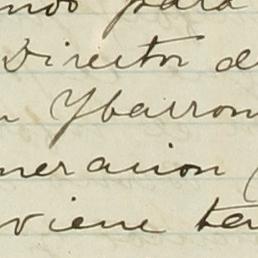 ndo para
Director d
n Ybarron
neracion (
viene ten